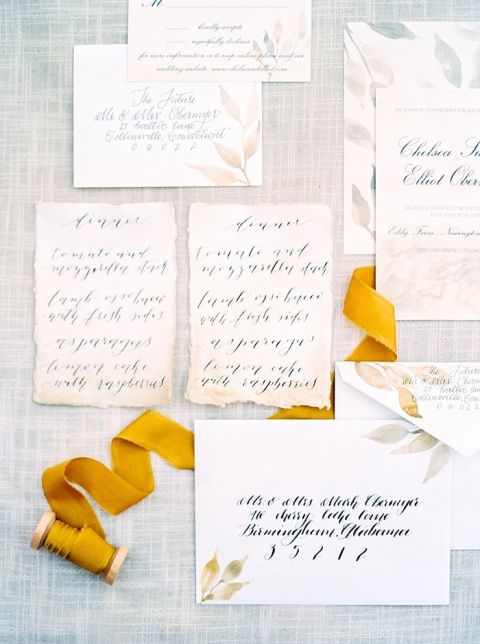 M
kindly accepts
regretfully declines
for more information or to rsvp online please visit our
wedding website www.chelseandelliot.com
The Future
Mr & Mrs. Obermyer
21 baltic lane
Collinsville, Connecticut
06022
dinner
tomato and
mozzarella stack
lamb ossobucco
with fresh sides
asparagus
lemon cake
with raspberries
dinner
tomato and
mozzarella stack
lamb ossobucco
with fresh sides
asparagus
lemon cake
with raspberries
Chelsea Su
Elliot Ober
Eddy Farm, Newington
The Future
Mr & Mrs. Obermyer
21 baltic lane
Collinsville, Connecticut
06022
Mr. & Mrs. Mark Obermyer
110 cherry lake lane
Birmingham, Alabama
35212